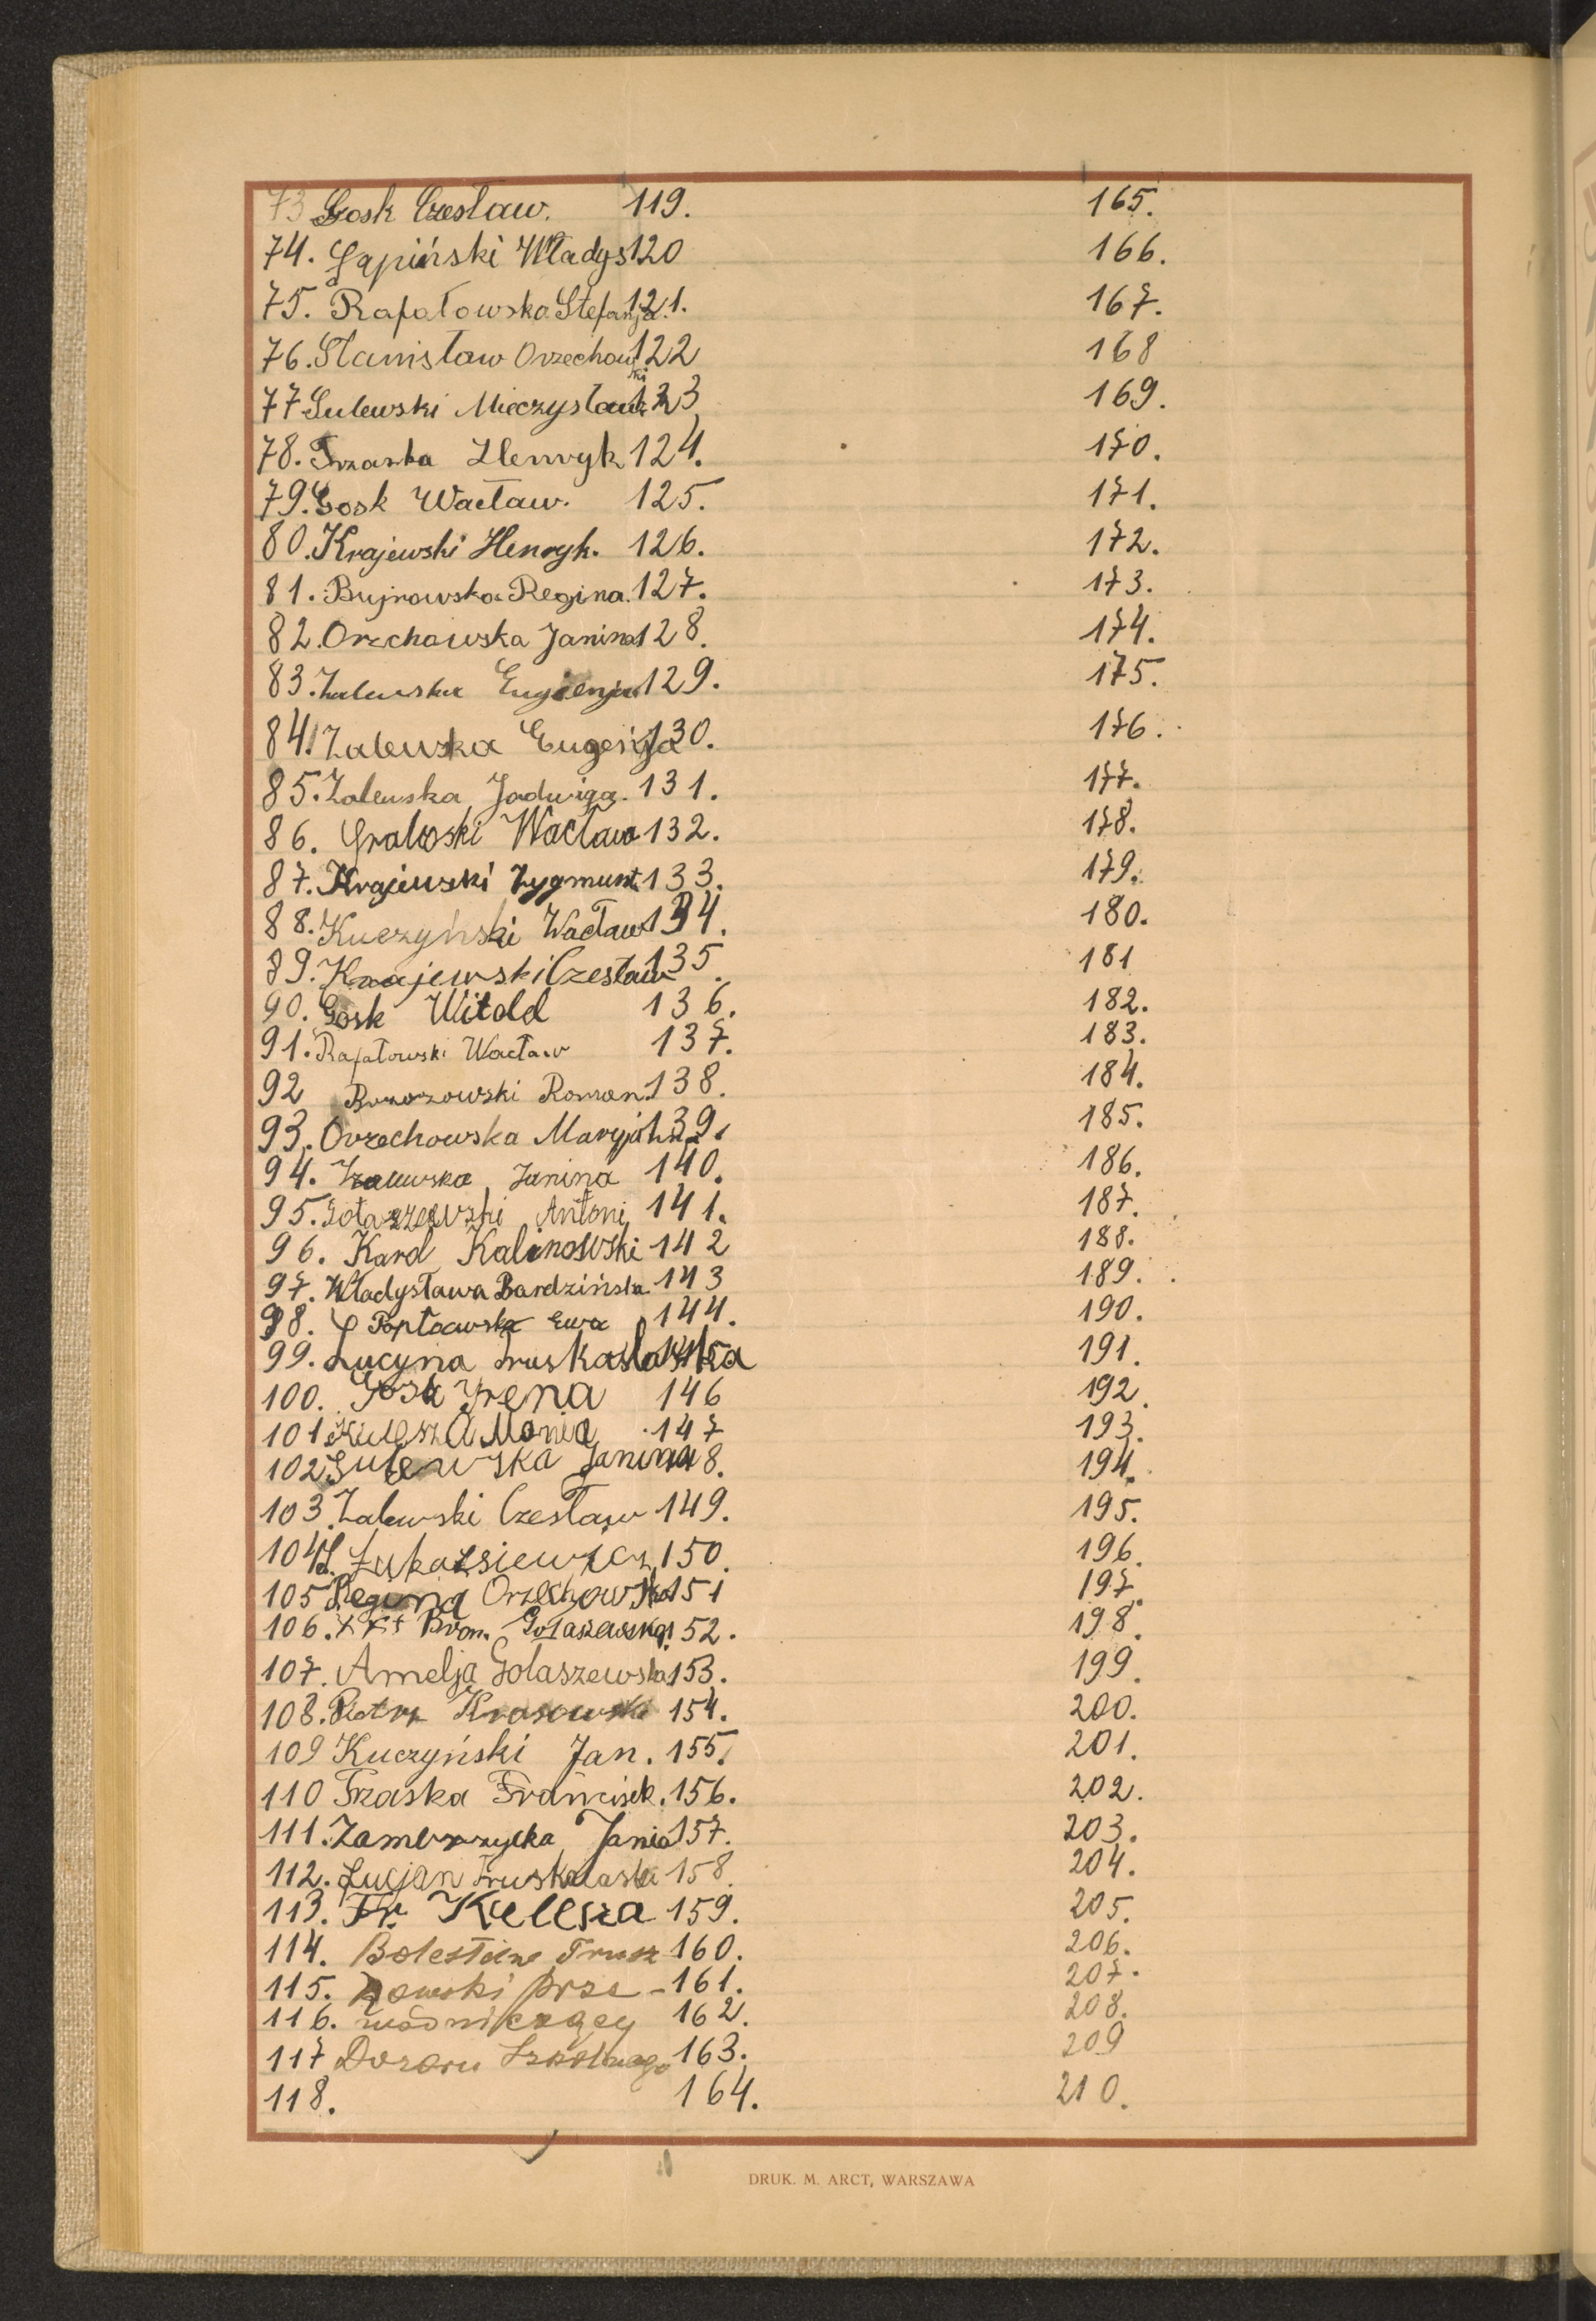 73 Gosk Czesław. 119. 165.
74. Sapiński Władys 120 166.
75. Rafałowska Stefanja. 121. 167.
76. Stanisław Orzechowski 122 168
77 Sulewski Mieczysław 123 169.
78. Trzaska Henryk 124. 170.
79. Gosk Wacław. 125. 171.
80. Krajewski Henryk. 126. 172.
81. Bujnowska Regina. 127. 173.
82. Orzchowska Janina 128. 174.
83. Zalewska Eugienja 129. 175.
84. Zalewska Eugenja 130. 176.
85. Zalewska Jadwiga. 131. 177.
86. Graloski Wacław 132. 178.
87. Krajewski Zygmunt. 133. 179.
88. Kuczyński Wacław 134. 180.
89. Krajewski Czesław 135. 181
90. Gosk Witold 136. 182.
91. Rafałowski Wacław 137. 183.
92 Brzozowski Roman. 138. 184.
93. Orzechowska Maryjanna 139. 185.
94. Zalewska Janina 140. 186.
95. Gołaszewski Antoni 141. 187.
96. Karol Kalinowski 142 188.
97. Władysława Bardzińska 143 189.
98. Popławska Ewa 144. 190.
99. Lucyna Truskolaska 145 191.
100. Gosk Yrena 146 192.
101 Kulesza Mania 147 193.
102 Sulewska Janina 148. 194.
103. Zalewski Czesław 149. 195.
104 Łukaszsiewicz 150. 196.
105 Regina Orzechowska 151 197.
106. +++ Bron. Gołaszewska 152. 198.
107. Amelja Gołaszewska 153. 199.
108. Piotr Krasowski 154. 200.
109 Kuczyński Jan. 155. 201.
110 Trzaska Francisek. 156. 202.
111. Zambrzycka Jania 157. 203.
112. Lucjan Truskolaski 158. 204.
113. Fr. Kulesza 159. 205.
114. Bolesław Trusz 160. 206.
115. kowski prze- 161. 207.
116. wodniczący 162. 208.
117 Dozoru Szkolnego 163. 209
118. 164. 210.
DRUK. M. ARCT, WARSZAWA